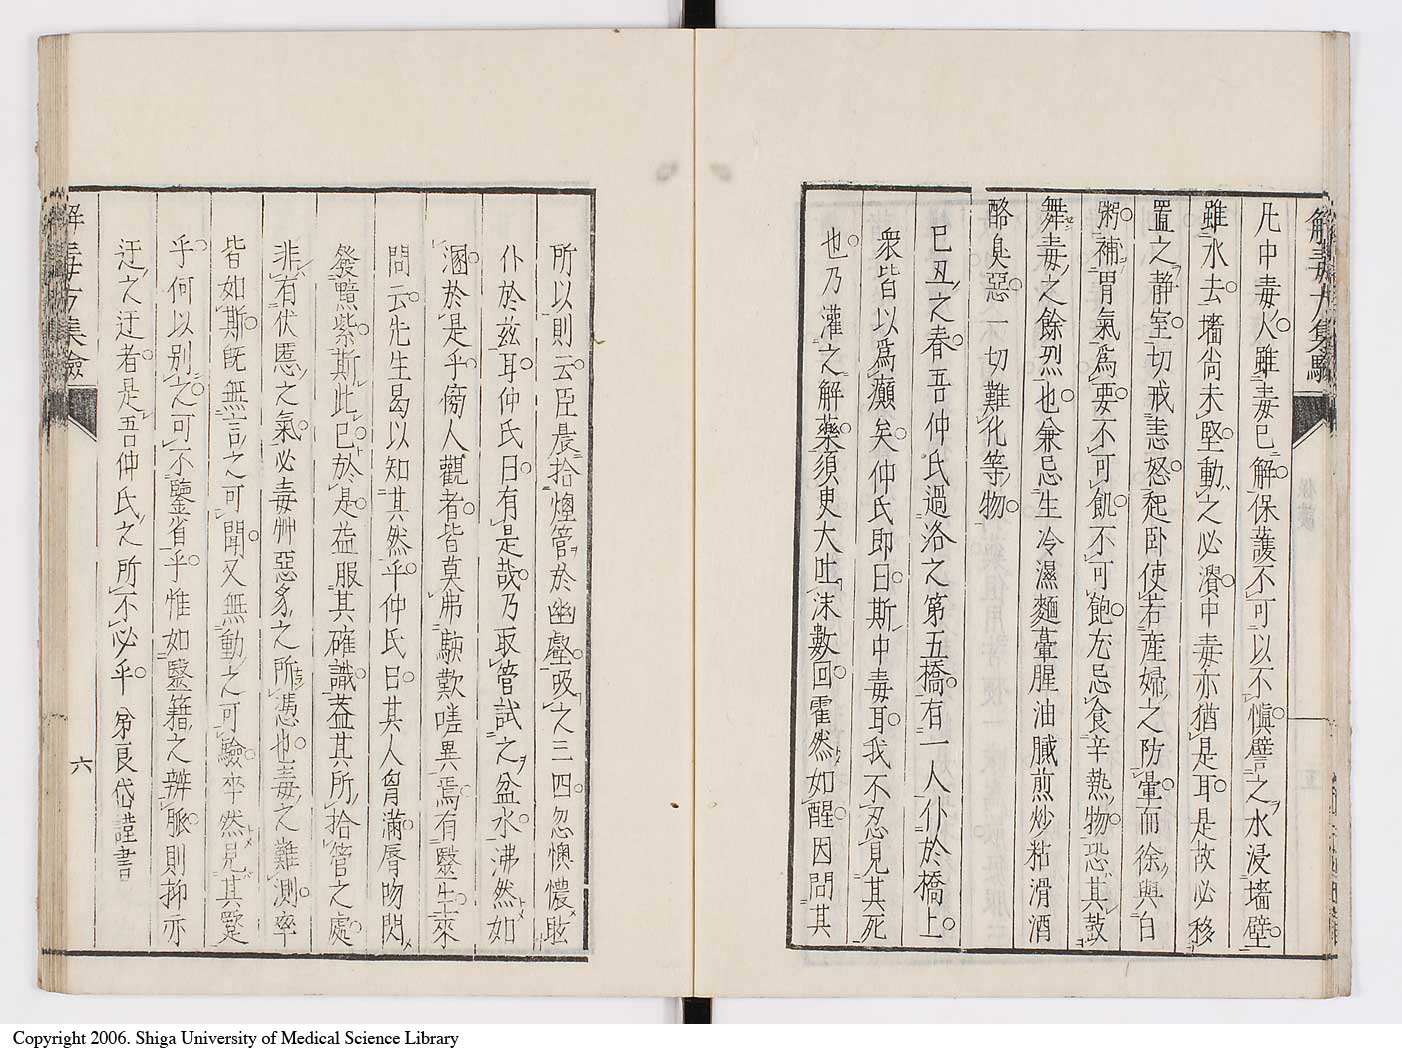 凡中毒人雖毒已解保護不可以不愼譬之水浸墻壁
雖水去墻尚未堅動之必潰中毒亦猶是耳是故必移
置之静室切戒恚怒起卧使若産婦之防暈而徐與白
粥補胃氣爲要不可飢不可飽尤忌食辛熱物恐其鼓
舞毒之餘烈也兼忌生冷濕麵葷腥油膩煎炒粘滑酒
酪臭惡一切難化等物
己丑之春吾仲氏過洛之第五橋有一人仆於橋上
衆皆以爲癲矣仲氏即曰斯中毒耳我不忍見其死
也乃灌之解藥須臾大吐沫數回霍然如醒因問其
所以則云臣晨拾煙管於幽壑吸之三四忽懊憹眩
仆於兹耳仲氏曰有是哉乃取管試之盆水沸然如
溷於是乎傍人觀者皆莫弗駭歎嗟異焉有醫生來
問云先生曷以知其然乎仲氏曰其人胷滿脣吻閃
發黯紫斯此已於是益服其確識蓋其所拾管之處
非有伏慝之氣必毒艸惡豸之所憑也毒之難測率
皆如斯既無言之可聞又無動之可驗卒然見其斃
乎何以别之可不鑒省乎惟如醫籍之辨脈則抑亦
迂之迂者是吾仲氏之所不必乎 弟良岱謹書
解毒方集驗
六